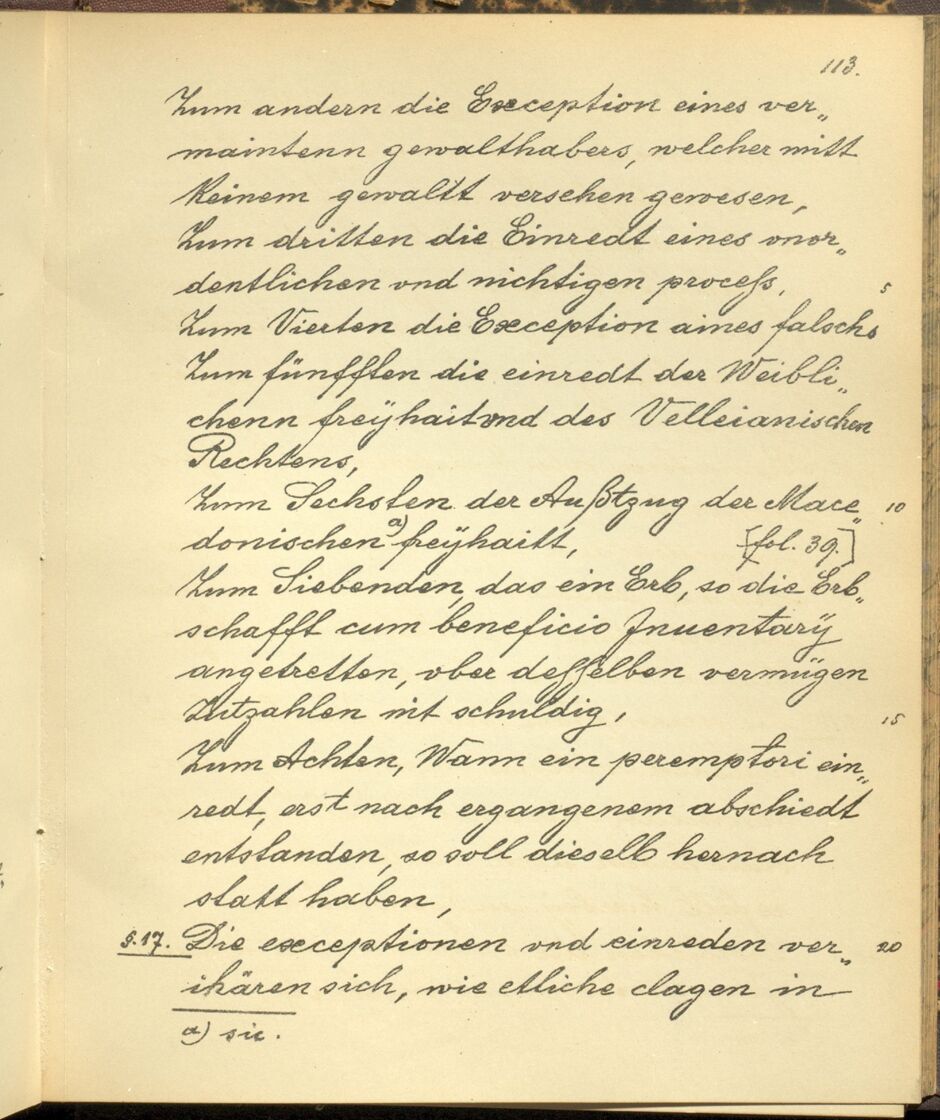 113.
Zum andern die Exception eines ver„
maintenn gewalthabers, welcher mitt
keinem gewaltt versehen gewesen,
Zum dritten die Einredt eines vnor„
dentlichen vnd nichtigen proceſs, 5
Zum Vierten die Exception aines falschs
Zum fünfften die einredt der Weibli„
chenn freÿhait vnd des Velleianischen
Rechtens,
Zum Sechsten der Außtzug der Mace„ 10
donischen a) freÿhaitt, [fol. 39.]
Zum Siebenden, das ein Erb, so die Erb„
schafft cum beneficio Inuentarÿ
angetretten, vber deſſelben vermügen
Zutzahlen nit schuldig, 15
Zum Achten, Wann ein peremptori ein„
redt, erst nach ergangenem abschiedt
entstanden, so soll dieselb hernach
statt haben,
§.17. Die exceptionen vnd einreden ver„ 20
ikären sich, wie etliche clagen in
a) sic.